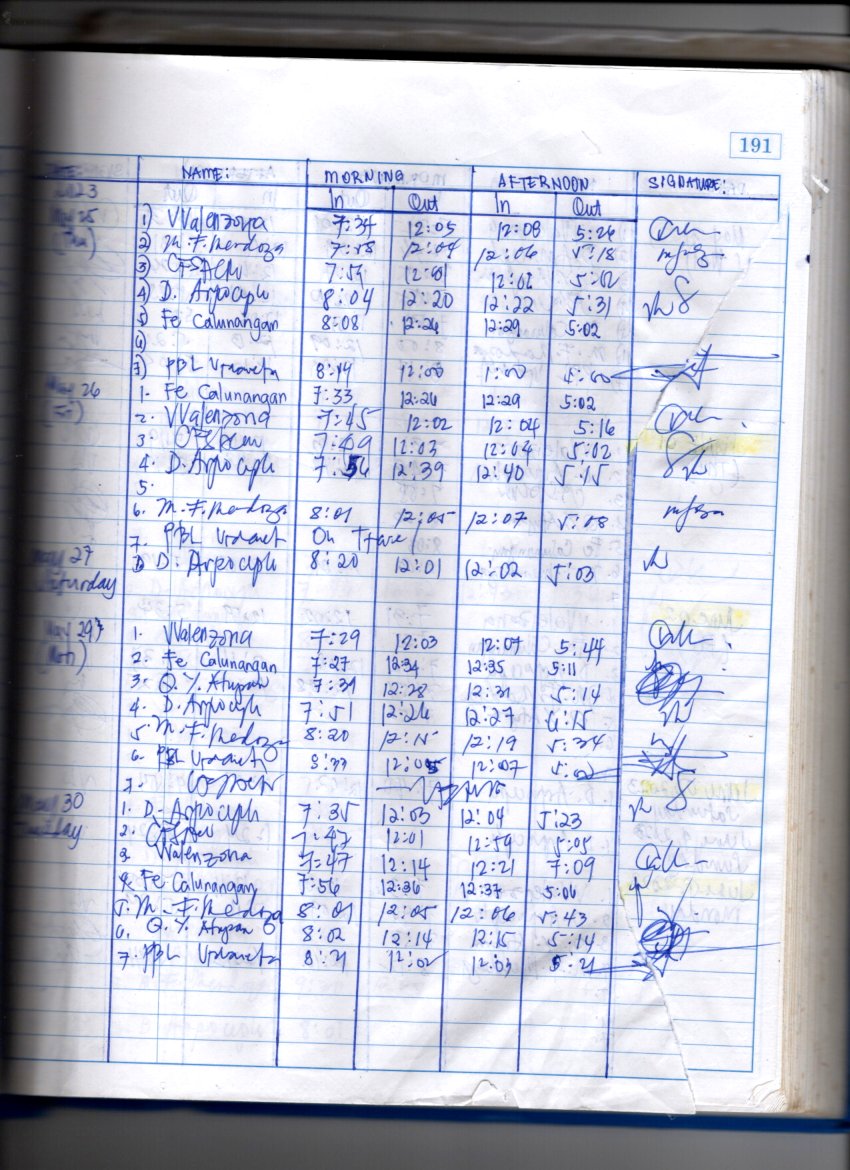 191
DATE: NAME: MORNING AFTERNOON SIGNATURE:
2023 In Out In Out
May 25 1) VValenzona 7:34 12:05 12:08 5:26
(Thu) 2) M. F. Mendoza 7:48 12:04 12:06 5:18
3) 7:59 12:01 12:02 5:02
4) D. Arpoceph 8:04 12:20 12:22 5:31
5) Fe Calunangan 8:08 12:26 12:29 5:02
6)
7) PBL 8:44 12:00 1:00 5:00
May 26 1. Fe Calunangan 7:33 12:26 12:29 5:02
(Fri) 2. VValenzona 7:45 12:02 12:04 5:16
3. 7:49 12:03 12:04 5:02
4. D. Arpoceph 7:56 12:39 12:40 5:15
5.
6. M. F. Mendoza 8:01 12:05 12:07 5:08
7. PBL On Travel
May 27 D. Arpoceph 8:20 12:01 12:02 5:03
Saturday
May 29 1. VValenzona 7:29 12:03 12:07 5:44
(Mon) 2. Fe Calunangan 7:27 12:34 12:35 5:11
3. Q. Y. Atupan 7:39 12:28 12:31 5:14
4. D. Arpoceph 7:51 12:26 12:27 6:15
5. M. F. Mendoza 8:20 12:15 12:19 5:34
6. PBL 8:33 12:05 12:07 5:02
7.
May 30 1. D. Arpoceph 7:35 12:03 12:04 5:23
Tuesday 2. 7:47 12:01 12:59 5:05
3. VValenzona 7:47 12:14 12:21 7:09
4. Fe Calunangan 7:56 12:36 12:37 5:06
5. M. F. Mendoza 8:01 12:05 12:06 5:43
6. Q. Y. Atupan 8:02 12:14 12:15 5:14
7. PBL 8:21 12:02 12:03 5:21